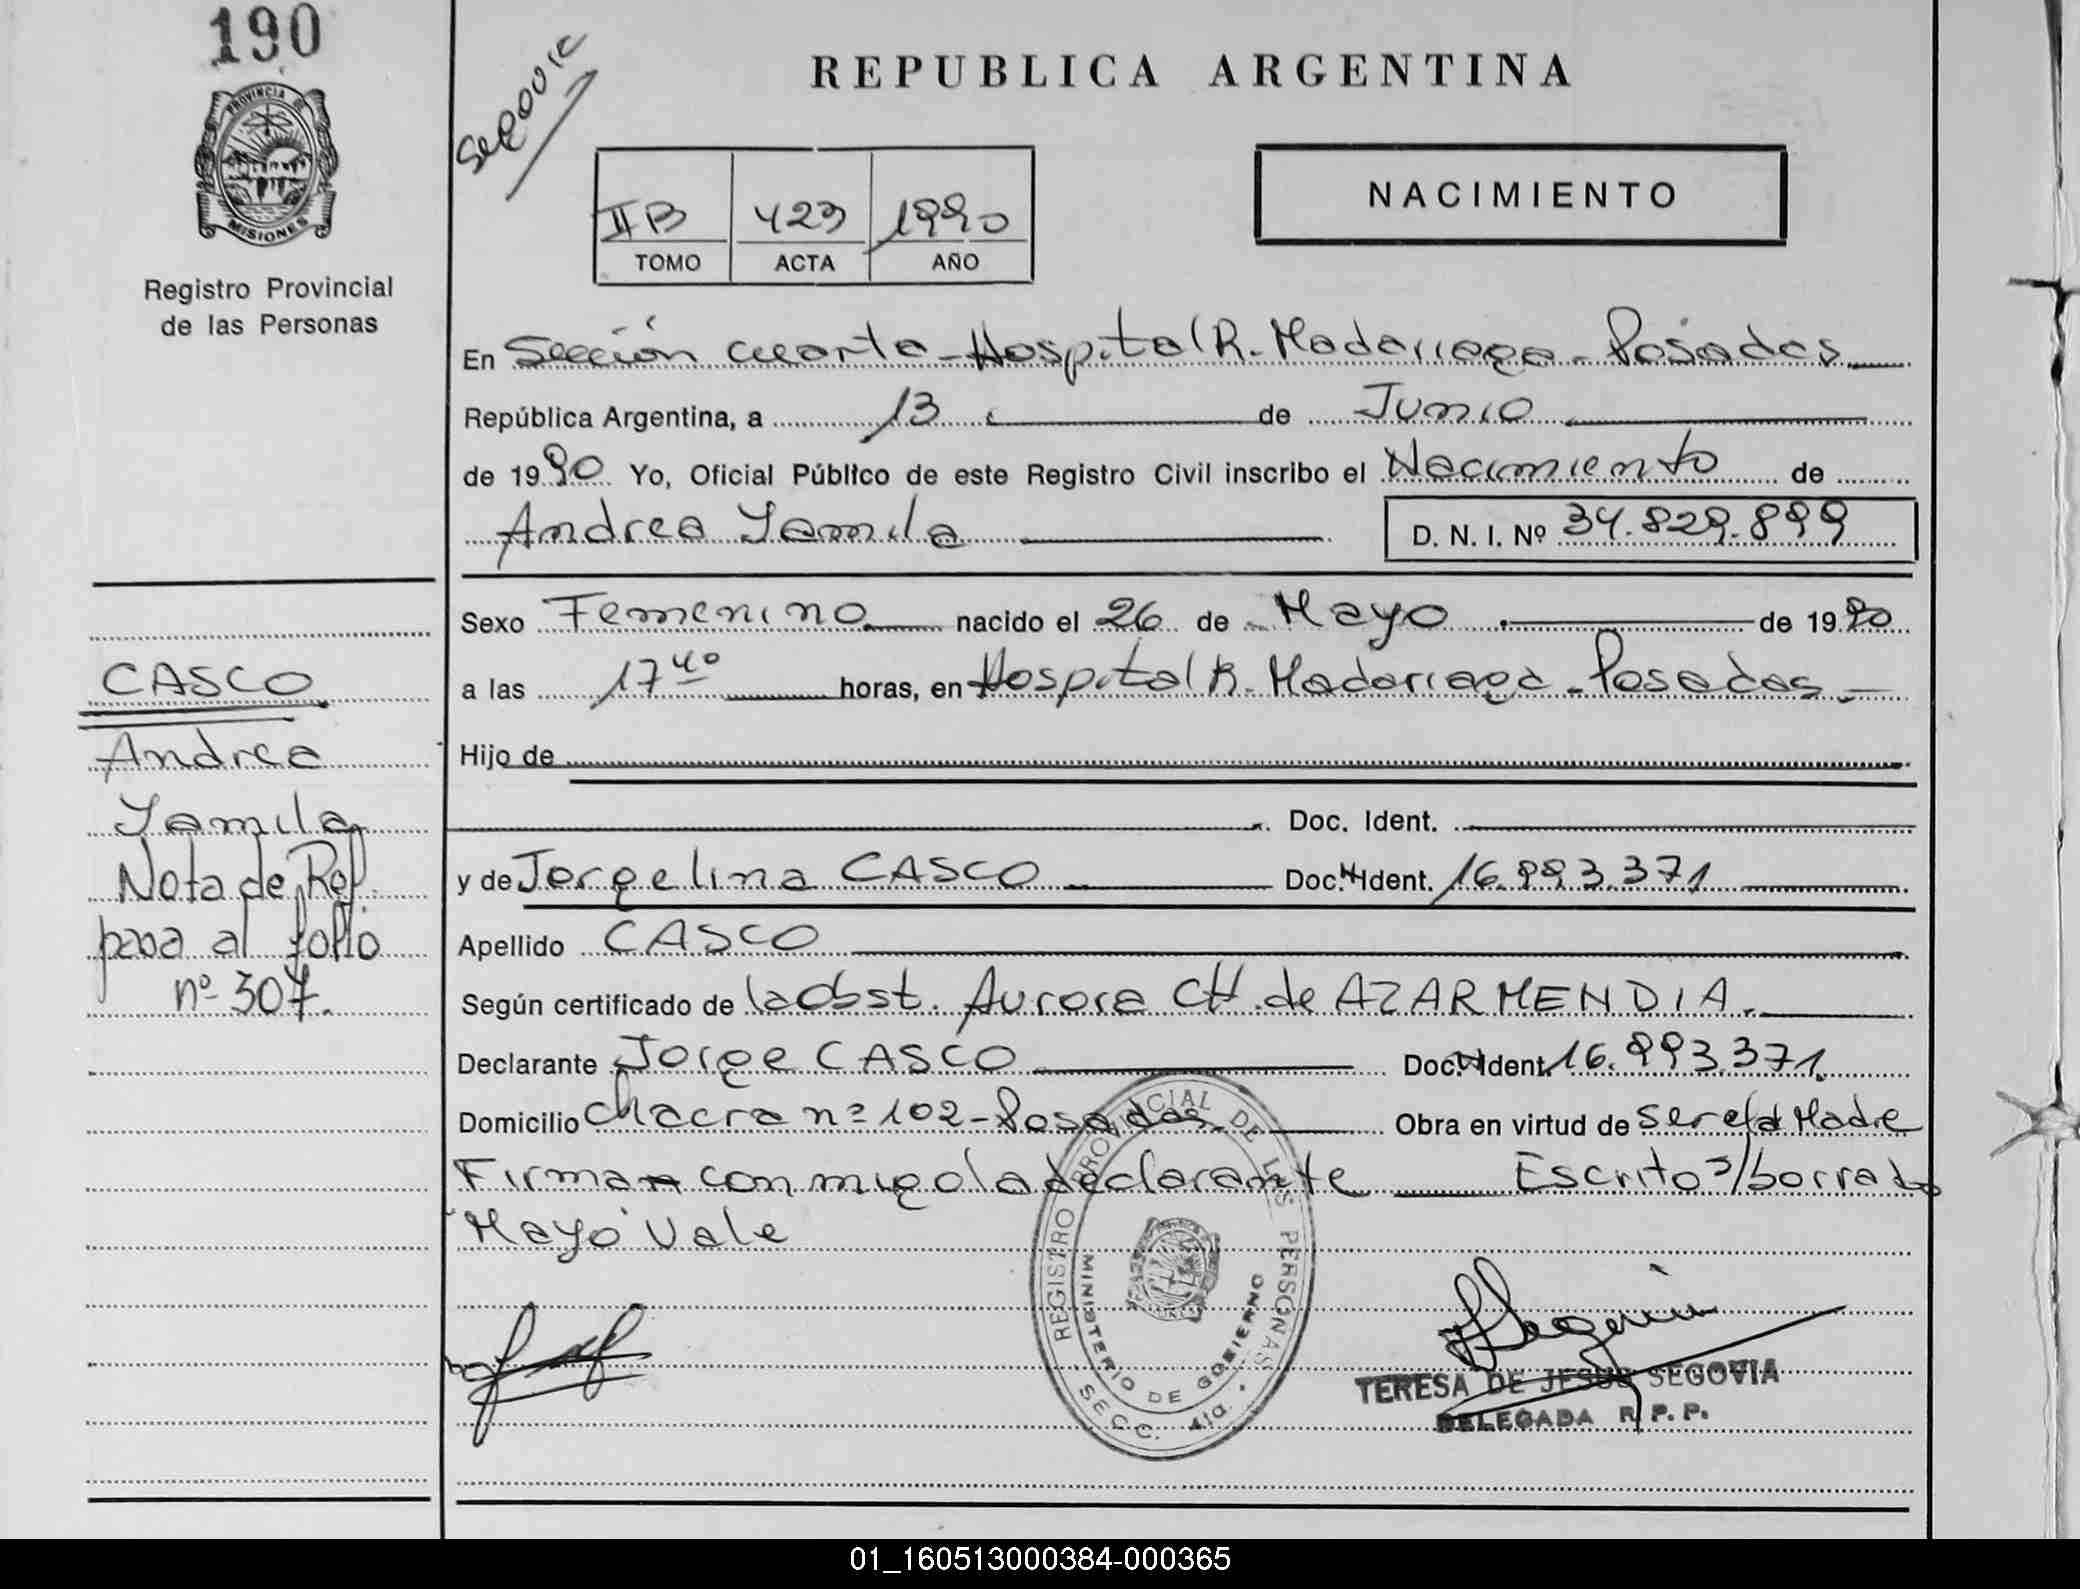 190
PROVINCIA DE
MISIONES
Registro Provincial
de las Personas
CASCO
Andrea
Yamila
Nota de Ref.
pasa al folio
nº 307.
REPUBLICA ARGENTINA
IIB 423 1990
TOMO ACTA AÑO
NACIMIENTO
En Sección cuarta - Hospital R. Madariaga - Posadas
República Argentina, a 13 de Junio
de 1990 Yo, Oficial Público de este Registro Civil inscribo el Nacimiento de
Andrea Yamila D. N. I. Nº 34.829.899
Sexo Femenino nacido el 26 de Mayo de 1990
a las 17 40 horas, en Hospital R. Madariaga - Posadas
Hijo de
Doc. Ident.
y de Jorgelina CASCO Doc. N Ident. 16.993.371
Apellido CASCO
Según certificado de la Obst. Aurora CH. de AZARMENDIA.
Declarante Jorge CASCO Doc. N Ident. 16.993.371.
Domicilio Chacra nº 102 - Posadas Obra en virtud de ser el/a Madre
Firma conmigo la declarante Escrito s/borrado
"Mayo" Vale
REGISTRO PROVINCIAL DE LAS PERSONAS
MINISTERIO DE GOBIERNO
SECC. 4ta.
TERESA DE JESUS SEGOVIA
DELEGADA R. P. P.
01_160513000384-000365